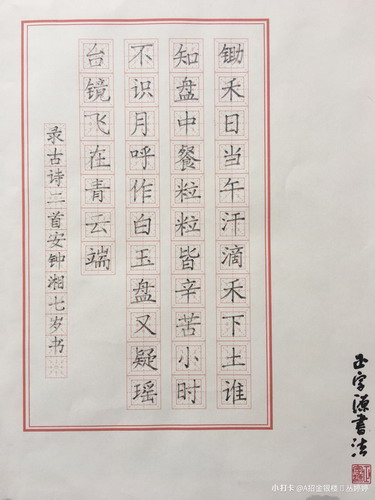 锄禾日当午汗滴禾下土谁
知盘中餐粒粒皆辛苦小时
不识月呼作白玉盘又疑瑶
台镜飞在青云端
录古诗二首安钟湘七岁书
正字源书法
小打卡@A招金银楼